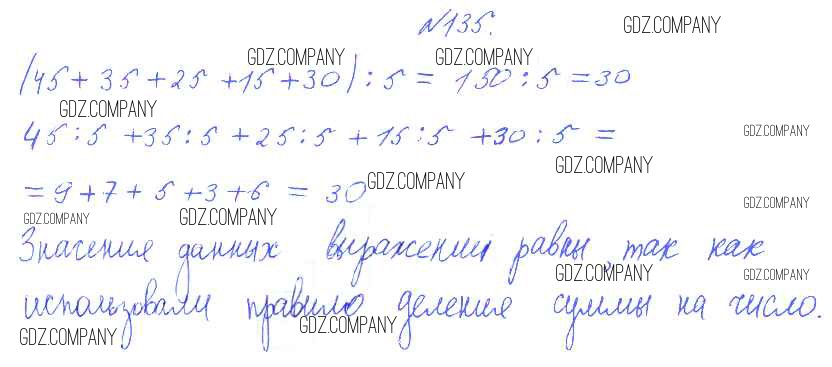 №135. GDZ.COMPANY
GDZ.COMPANY GDZ.COMPANY
(45+35+25+15+30):5=150:5=30
GDZ.COMPANY
45:5+35:5+25:5+15:5+30:5= GDZ.COMPANY
GDZ.COMPANY
=9+7+5+3+6=30 GDZ.COMPANY
GDZ.COMPANY
GDZ.COMPANY GDZ.COMPANY
Значения данных выражений равны, так как
GDZ.COMPANY GDZ.COMPANY
использовали правило деления суммы на число.
GDZ.COMPANY GDZ.COMPANY